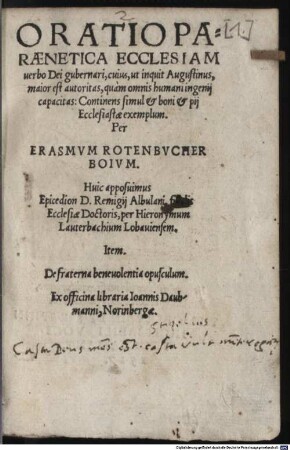 2
[1.]
ORATIO PA=
RÆNETICA ECCLESIAM
uerbo Dei gubernari, cuius, ut inquit Augustinus,
maior est autoritas, quàm omnis humani ingenij
capacitas: Continens simul & boni & pij
Ecclesiastæ exemplum.
Per
ERASMVM ROTENBVCHER
BOIVM.
Huic apposuimus
Epicedion D. Remigij Albulani,
Ecclesiæ Doctoris, per Hieronymum
Lauterbachium Lobauiensem.
Item.
De fraterna beneuolentia opusculum.
Ex officina libraria Ioannis Daub=
manni, Norinbergæ.
Casta Deus mens est. casta vult mente